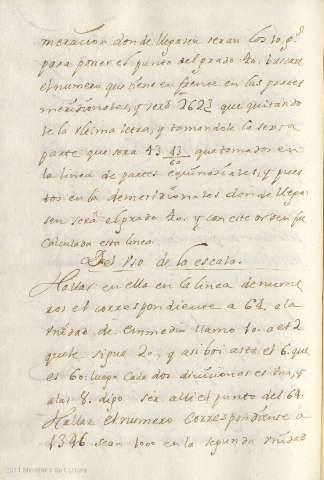 meracion donde llegasen seran los 10 ps
para poner el punto del grado 40. buscase
el numero que tiene en frente en las partes
meridionales, y será 2623 que quitando
le la vltima letra, y tomandole la sexta
parte que será 43 43/60 que tomados en
la linea de partes equinociales, y pues
tos en la de meridionales donde llega
sen será el grado 40. y con este orden fue
Calculada esta linea.
Del Vso de la escala.
Hallar en ella en la linea de nume
ros el correspondiente a 64. a la
Vnidad de Enmedio llamo 10. a el 2
que le sigue 20, y asi boi asta el 6. que
es 60. luego Cada dos diuiciones es Vna, y
a las 8. digo ser alli el punto del 64.
Hallar el numero Correspondiente a
4346 sean 1000 en la segunda Vnidad
2011 Ministerio de Cultura